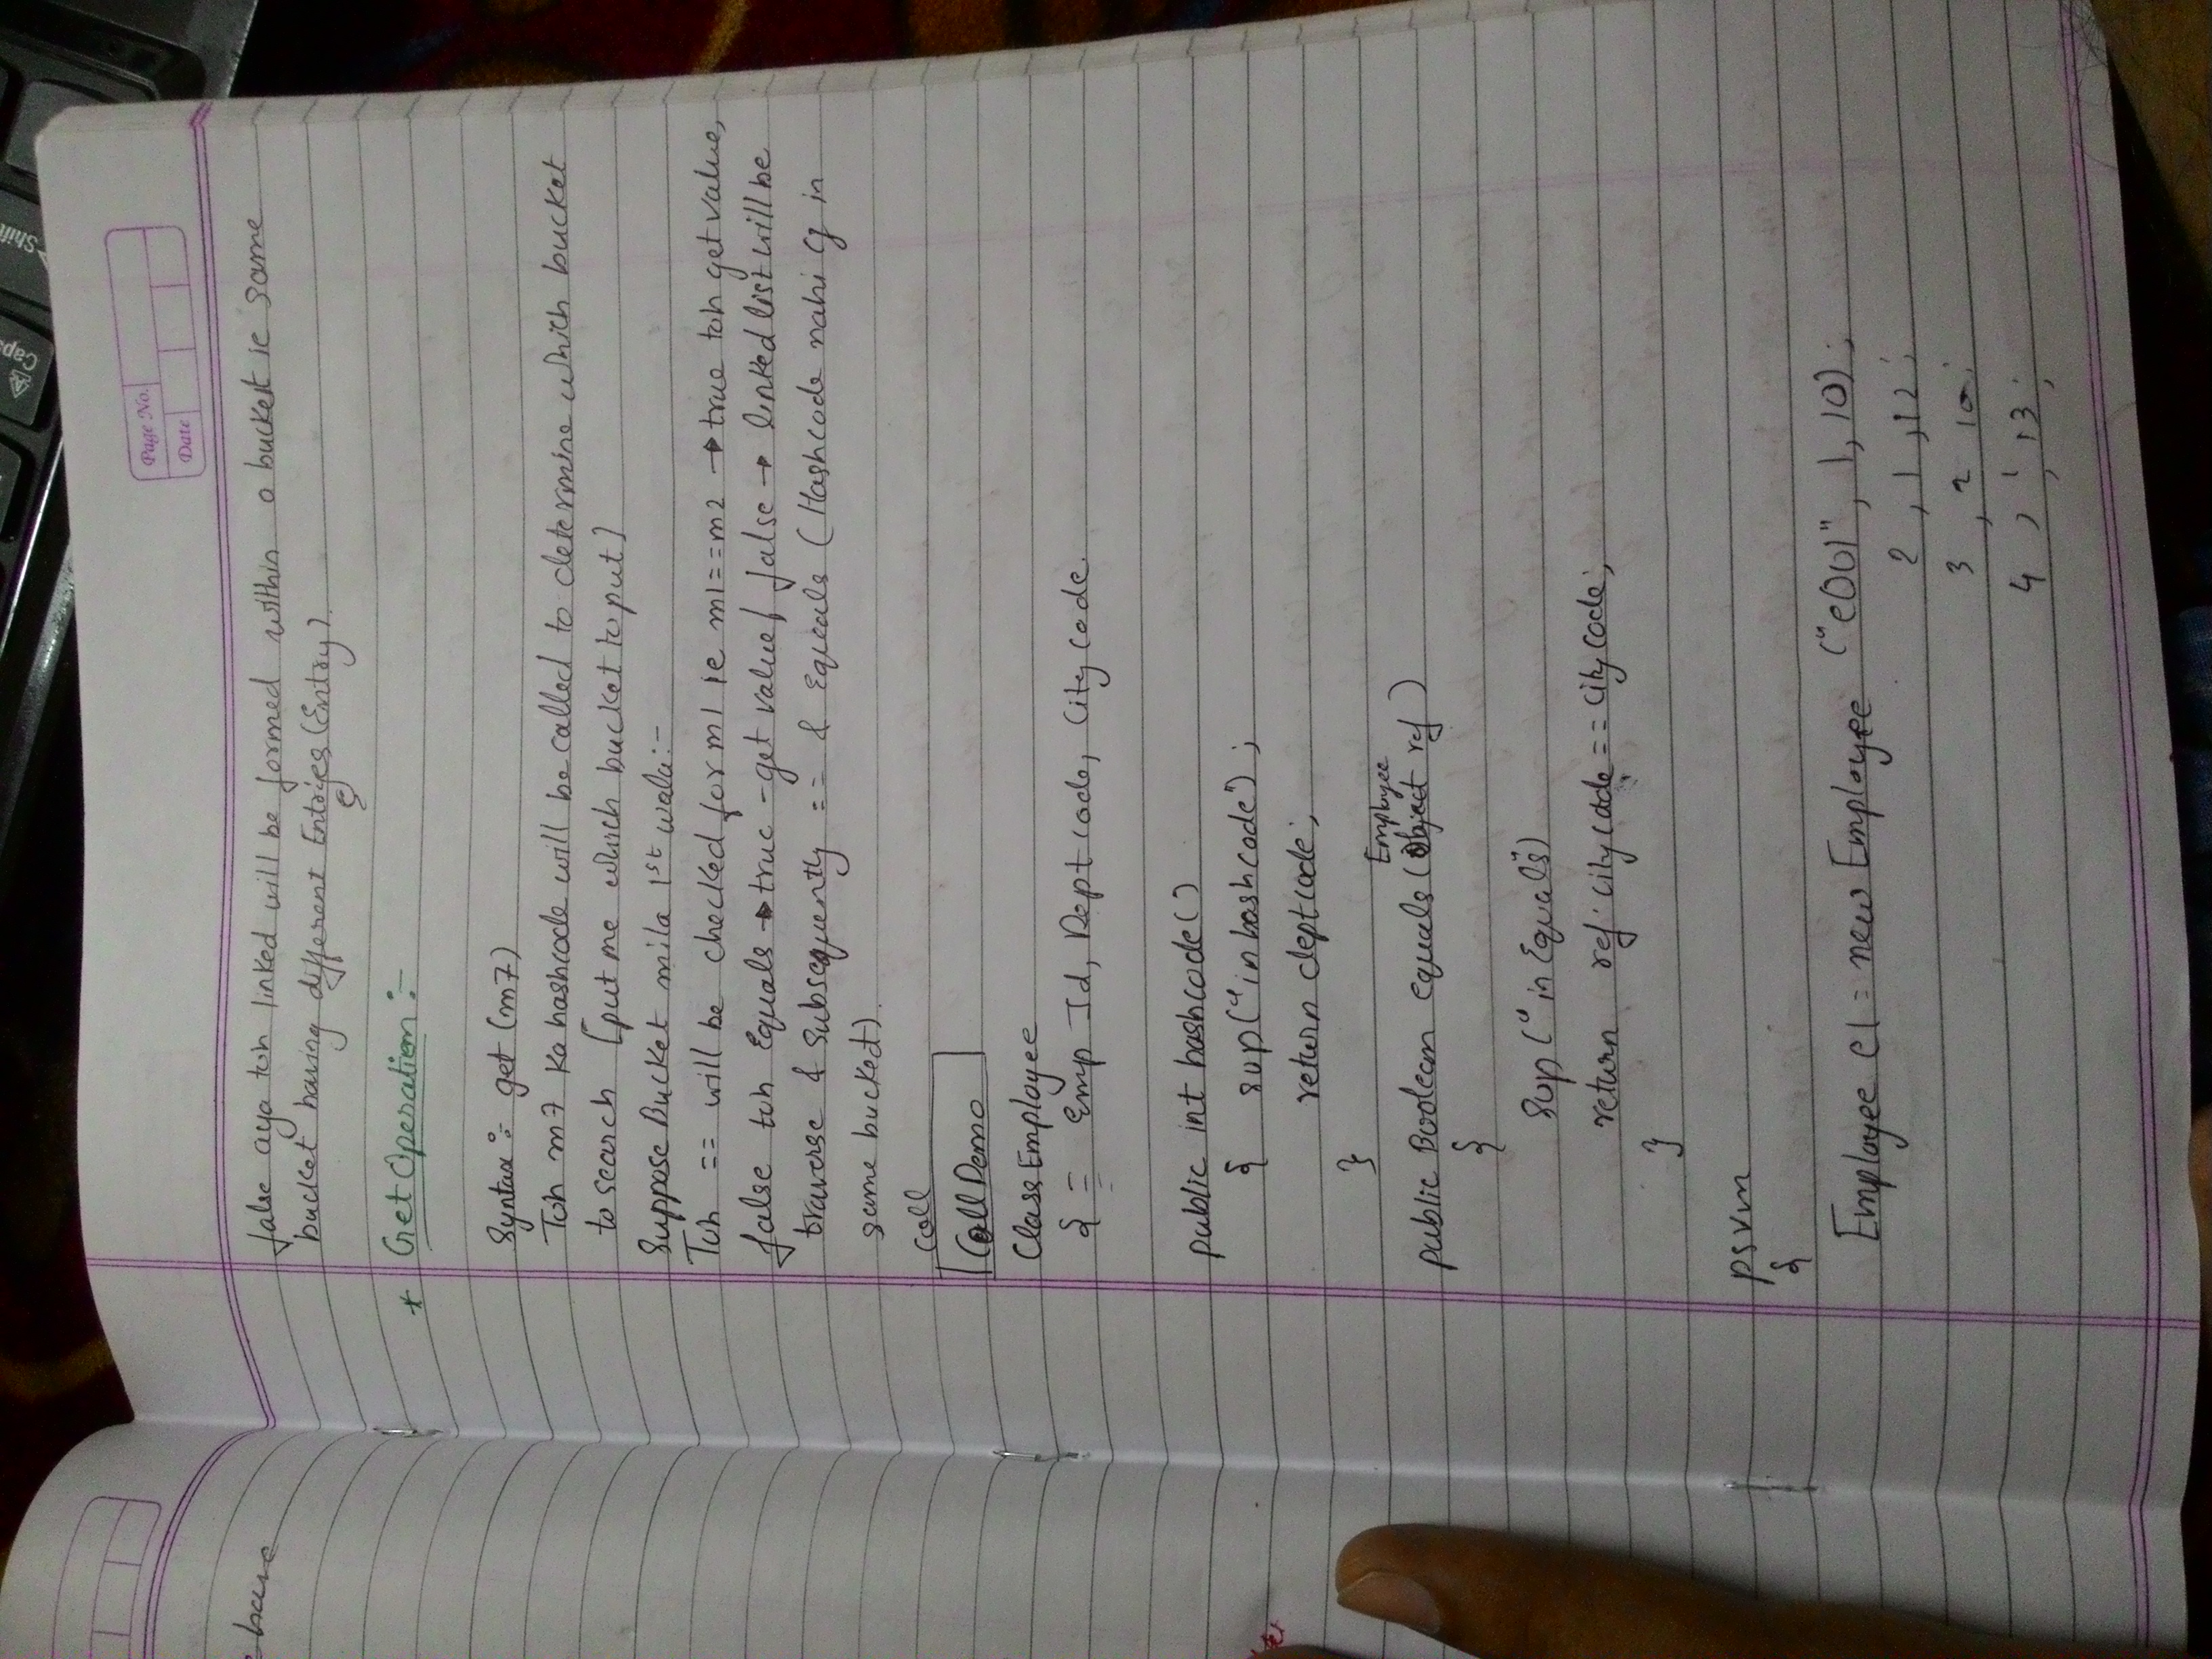 have
Page No.
Date
false aya toh linked will be formed within a bucket ie same
bucket having different Entries (Entry).
* Get Operation :-
Syntax :- get (m7)
Toh m7 ka hashcode will be called to determine which bucket
to search [put me which bucket to put]
Suppose Bucket mila 1st wala :-
Toh == will be checked for m1 ie m1==m2 → true toh get value,
false toh Equals → true - get value / false → linked list will be
traverse & subsequently == & Equals (Hashcode nahi cz in
same bucket).
Coll
CollDemo
Class Employee
{ = Emp Id, Dept code, City code.
public int hashcode()
{ sop("in hashcode");
return deptcode;
}
Employee
public Boolean equals (Object ref)
{
Sop ("in Equals")
return ref.citycode == City Code;
}
psvm
{
Employee e1 = new Employee ("e001", 1, 10);
2, 1, 12;
3, 2 10;
4, 1, 13;
Caps
Shift